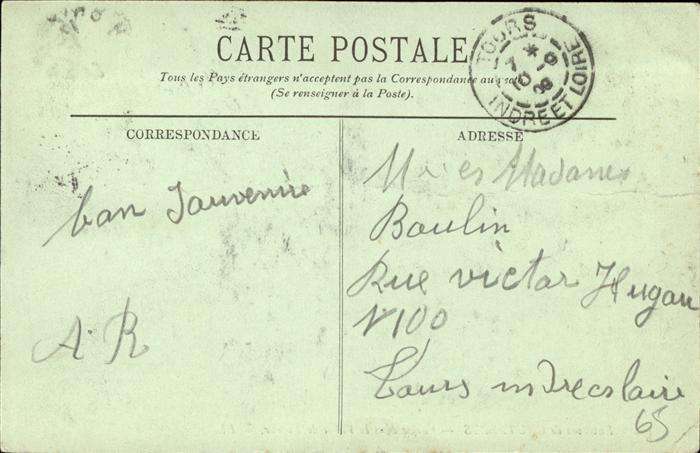 CARTE POSTALE
Tous les Pays étrangers n'acceptent pas la Correspondance au
(Se renseigner à la Poste).
TOURS
7 * 10 -9 09
INDRE ET LOIRE
CORRESPONDANCE
ban Souvenire
A. R
ADRESSE
M r es Madame
Baulin
Rue victar Hugau
N 100
Tours indrecslaire
65